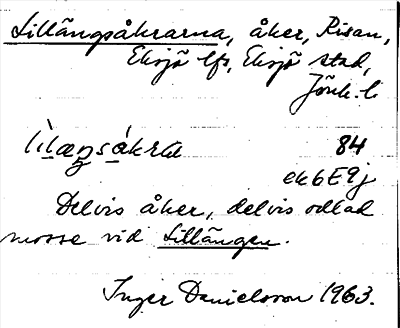 Lillängsåkrarna, åker, Risan,
Eksjö lfs, Eksjö stad,
Jönk. l.
lìlæŋsákra 84
ek6E9j
Delvis åker, delvis odlad
mosse vid Lillängen.
Inger Danielsson 1963.